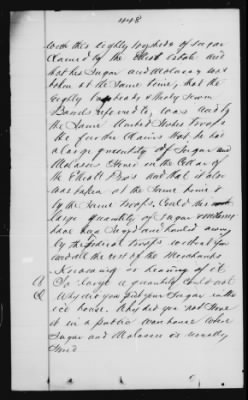 448
with this eighty hogsheds of sugar
claimed by the Elliott Estate and
that his Sugar and Molasses was
taken at the same time, that the
Eighty hogsheads & thirty seven
Barrels referred to, was and by
the same United States troops
He further claims that he had
a large quantity of Sugar and
Molasses stored in the Cellar of
the Elliott Bros and that it also
was taken at the same time &
by the same troops. Could this
large quantity of sugar
have been seized and hauled away
by the federal troops without you
and all the rest of the Merchants
Knowing or hearing of it
A So large a quantity could not
Q Why did you put your Sugar in the
ice house. Why did you not store
it in a public warehouse where
Sugar and Molasses is usually
stored